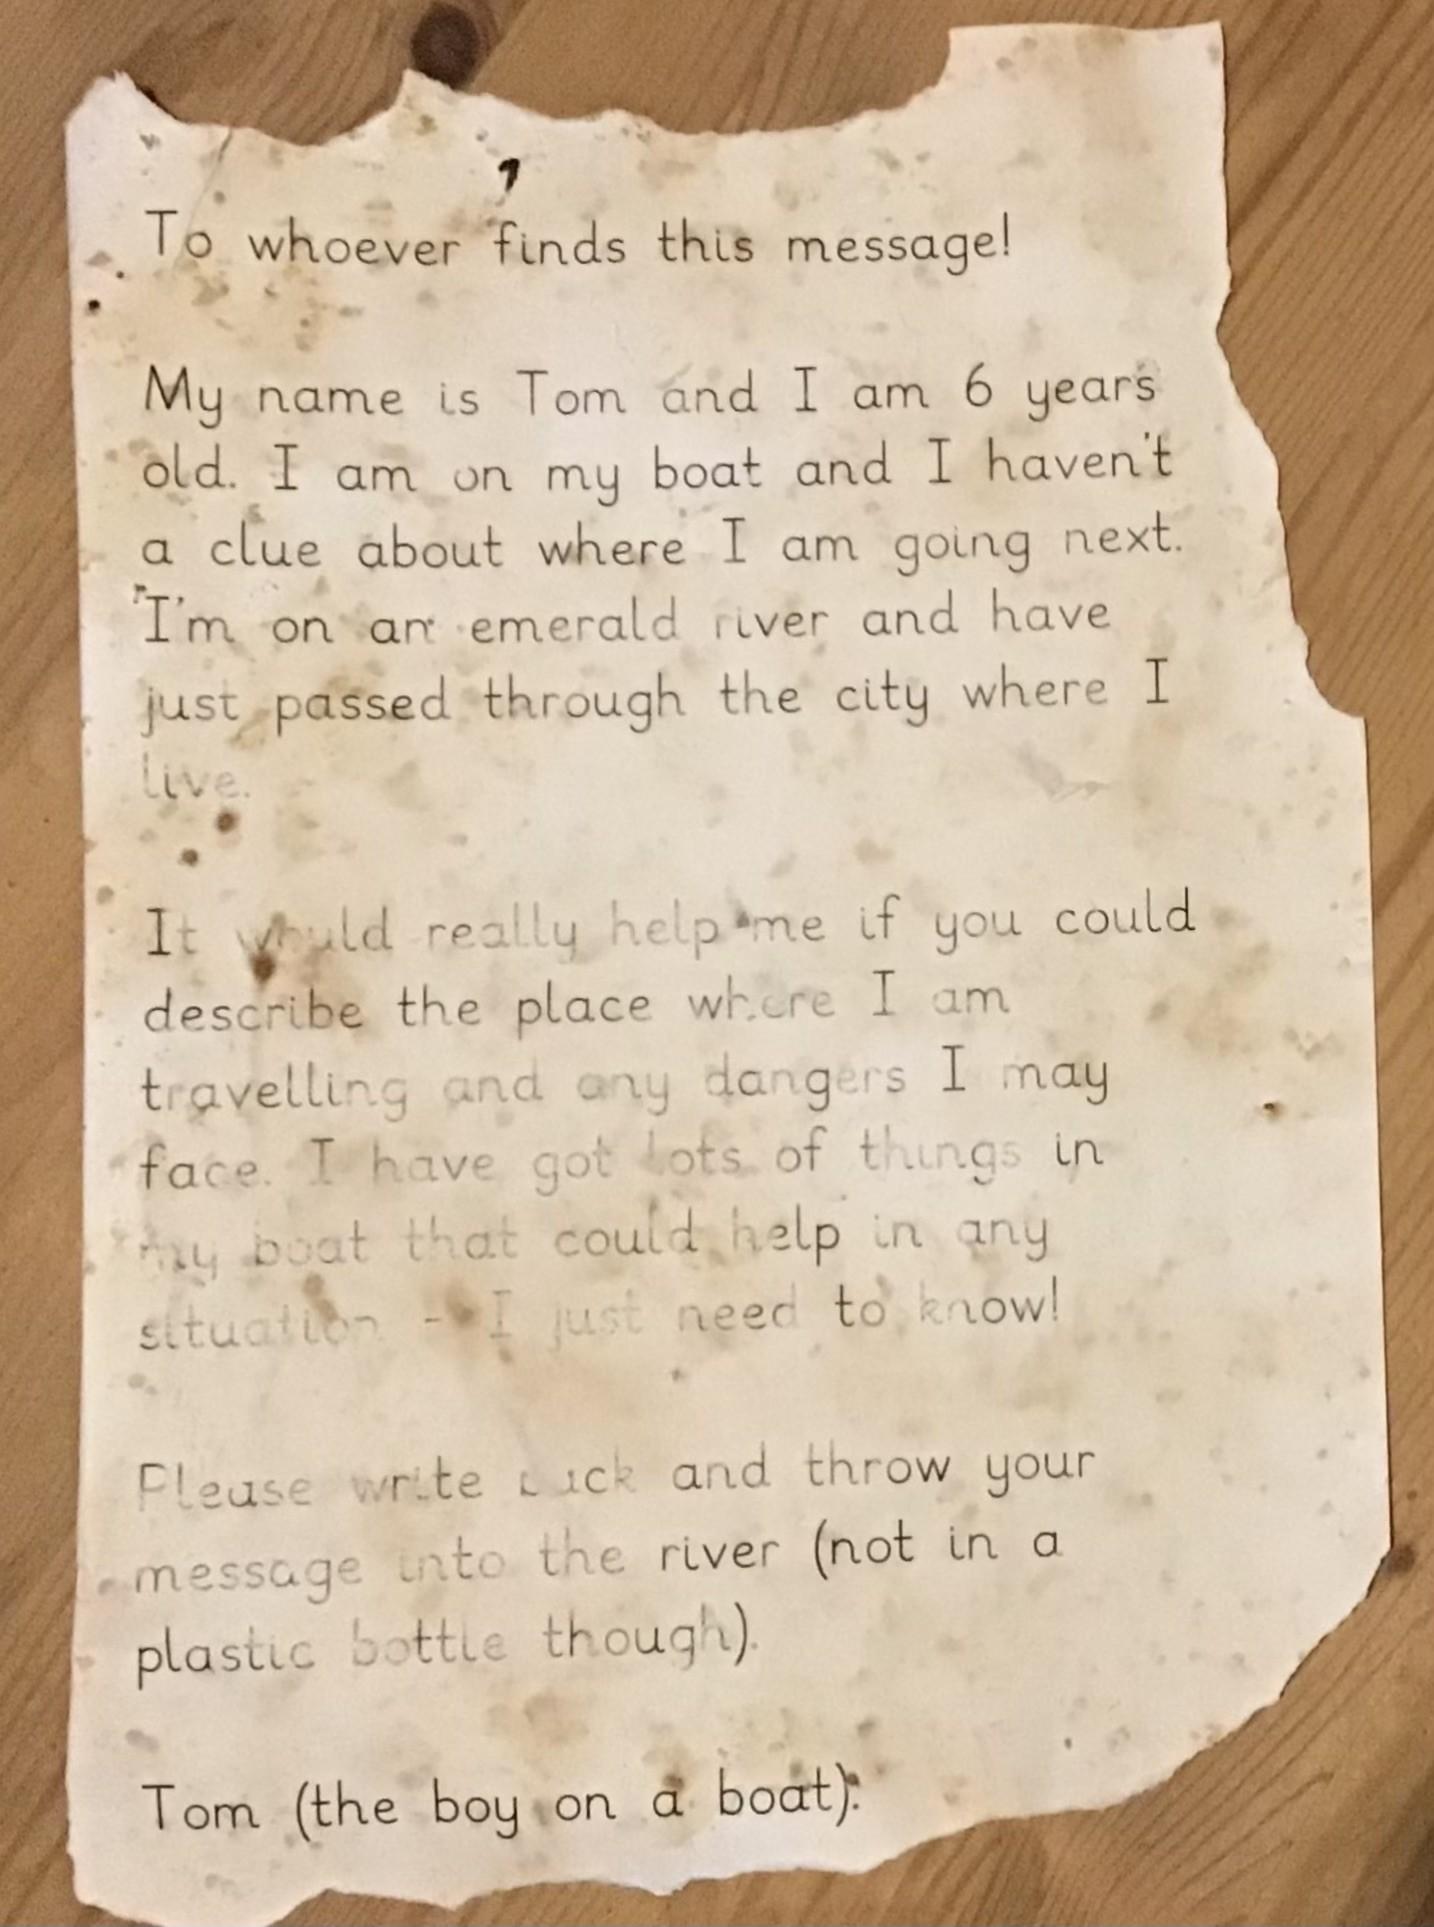 To whoever finds this message!
My name is Tom and I am 6 years
old. I am on my boat and I haven't
a clue about where I am going next.
I'm on an emerald river and have
just passed through the city where I
live.
It would really help me if you could
describe the place where I am
travelling and any dangers I may
face. I have got lots of things in
my boat that could help in any
situation - I just need to know!
Please write back and throw your
message into the river (not in a
plastic bottle though).
Tom (the boy on a boat).